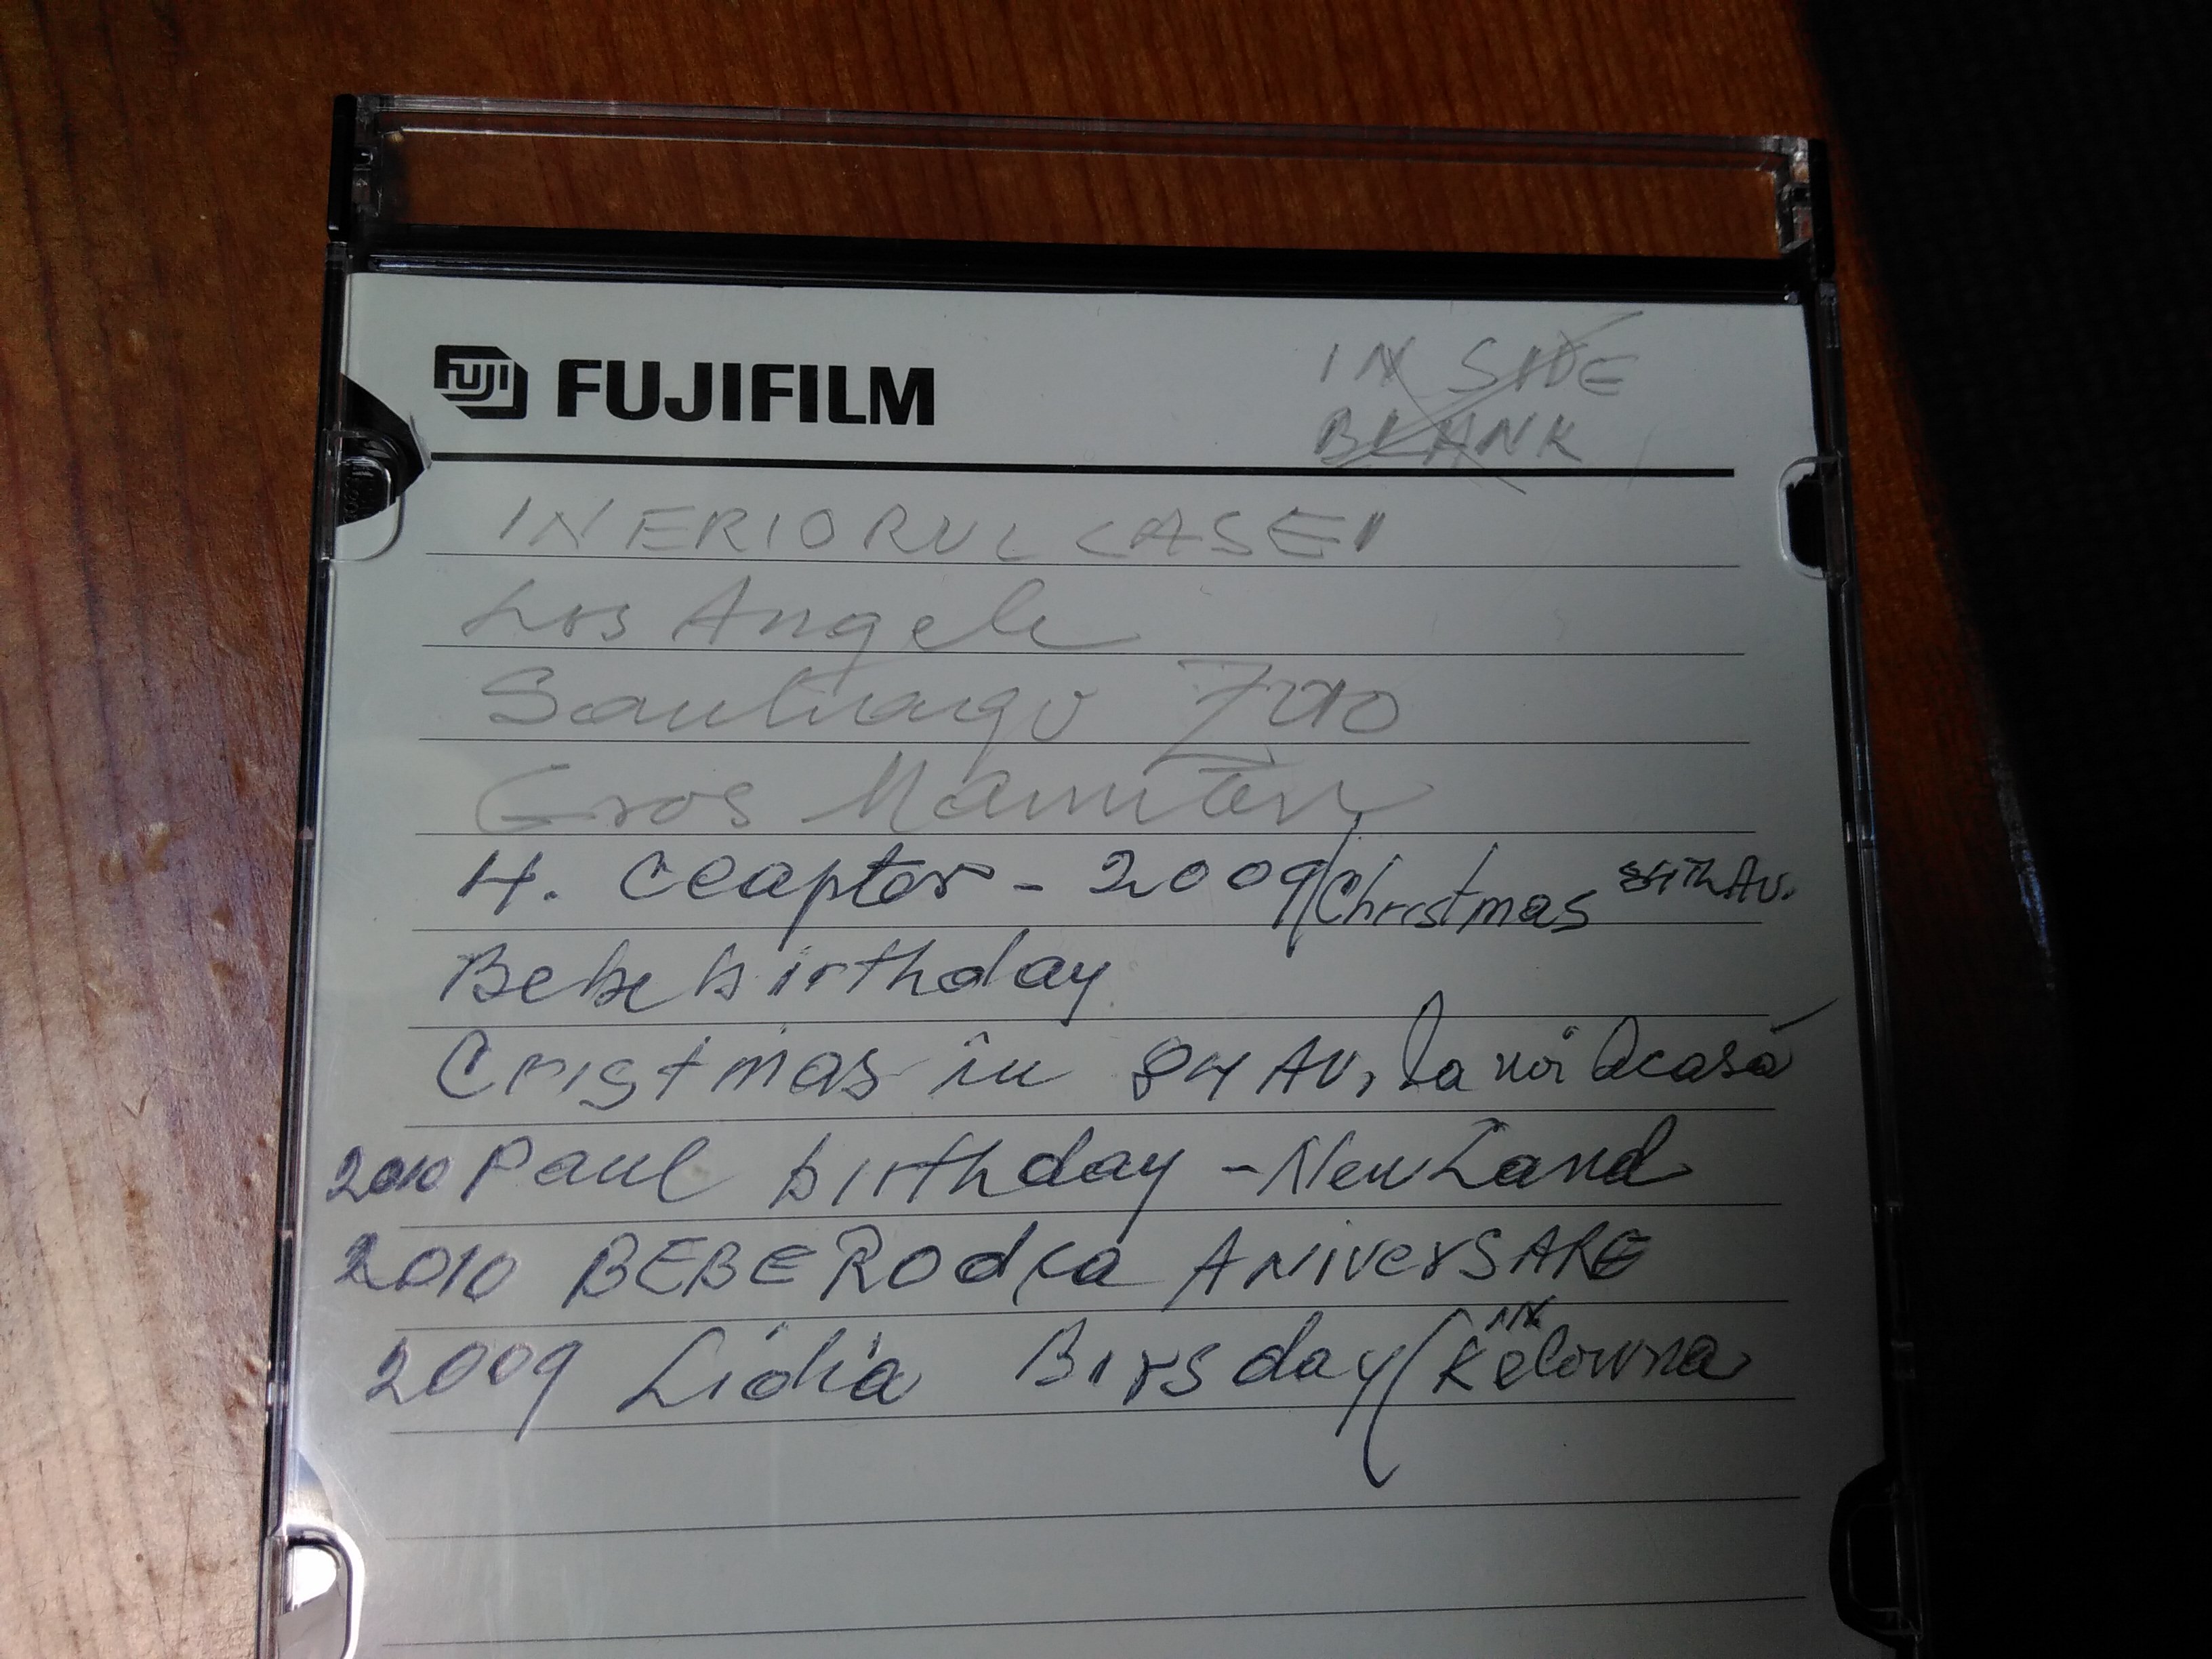 FUJI FUJIFILM
IN SIDE
BLANK
INERIORUL CASEI
Los Angele
Santiago Zoo
Gros
H. Ceaptor - 2009/Christmas 84Th Av.
Bebe birthday
Cristmas în 84 AV, la noi acasă
2010 Paul birthday - New Land
2010 BEBE Rodca ANIVERSARE
2009 Lidia Birsday (in Kelowna